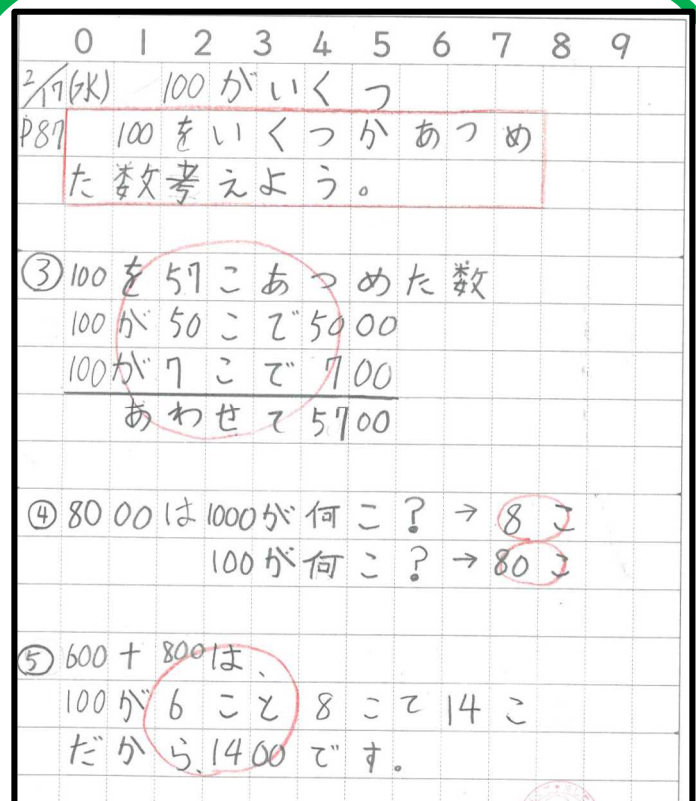 0 1 2 3 4 5 6 7 8 9
2/17(水) 100がいくつ
P87 100をいくつかあつめ
た数考えよう。
③100を57こあつめた数
100が50こで5000
100が7こで700
あわせて5700
④8000は1000が何こ?→8こ
100が何こ?→80こ
⑤600+800は、
100が6こと8こて14こ
だから、1400です。